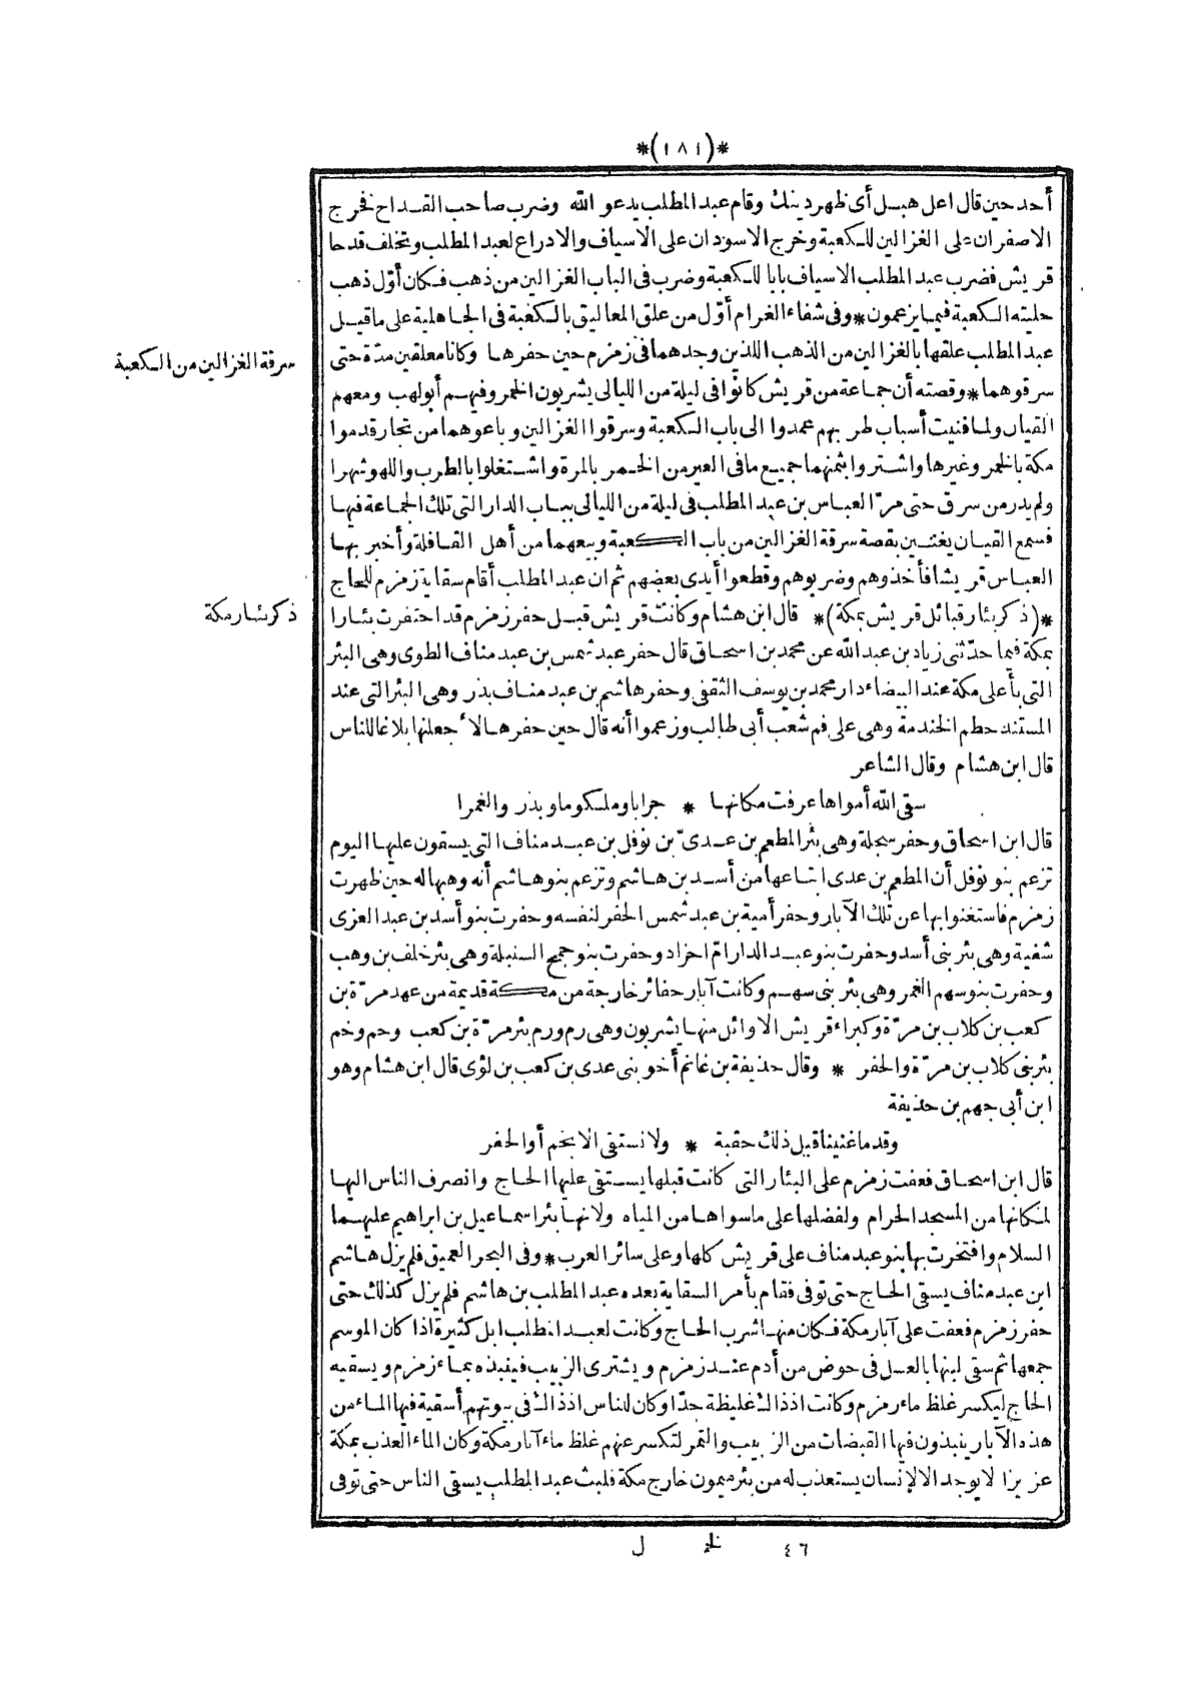 *(١٨١)*
أحد حين قال اعل هبل أى ظهر دينك وقام عبد المطلب يدعو الله وضرب صاحب القداح فخرج
الاصفران على الغزالين للكعبة وخرج الاسودان على الاسياف والادراع لعبد المطلب وتخلف قدحا
قريش فضرب عبد المطلب الاسياف بابا للكعبة وضرب فى الباب الغزالين من ذهب فكان أوّل ذهب
حليته الكعبة فيما يزعمون * وفى شفاء الغرام أوّل من علق المعاليق بالكعبة فى الجاهلية على ماقيل
عبد المطلب علقها بالغزالين من الذهب اللذين وجدهما فى زمزم حين حفرها وكانا معلقين مدّة حتى
سرقوهما * وقصته أن جماعة من قريش كانوا فى ليلة من الليالى يشربون الخمر وفيهم أبو لهب ومعهم
القيان ولما فنيت أسباب طربهم عمدوا الى باب الكعبة وسرقوا الغزالين وباعوهما من تجار قدموا
مكة بالخمر وغيرها واشتروا بثمنهما جميع ما فى العير من الخمر بالمرة واشتغلوا بالطرب واللهو شهرا
ولم يدر من سرق حتى مرّ العباس بن عبد المطلب فى ليلة من الليالى بباب الدار التى تلك الجماعة فيها
فسمع القيان يغنين بقصة سرقة الغزالين من باب الكعبة وبيعهما من أهل القافلة وأخبر بها
العباس قريشا فأخذوهم وضربوهم وقطعوا أيدى بعضهم ثم ان عبد المطلب أقام سقاية زمزم للحاج
*(ذكر بئار قبائل قريش بمكة)* قال ابن هشام وكانت قريش قبل حفر زمزم قد احتفرت بئارا
بمكة فيما حدّثنى زياد بن عبد الله عن محمد بن اسحاق قال حفر عبد شمس بن عبد مناف الطوى وهى البئر
التى بأعلى مكة عند البيضاء دار محمد بن يوسف الثقفى وحفر هاشم بن عبد مناف بذر وهى البئر التى عند
المستند حطم الخندمة وهى على فم شعب أبى طالب وزعموا أنه قال حين حفرها لأجعلنها بلاغا للناس
قال ابن هشام وقال الشاعر
سقى الله أمواها عرفت مكانها * جرابا وملكوما وبذر والغمرا
قال ابن اسحاق وحفر سجلة وهى بئر المطعم بن عدىّ بن نوفل بن عبد مناف التى يسقون عليها اليوم
تزعم بنو نوفل أن المطعم بن عدى ابتاعها من أسد بن هاشم وتزعم بنو هاشم أنه وهبها له حين ظهرت
زمزم فاستغنوا بها عن تلك الآبار وحفر أمية بن عبد شمس الحفر لنفسه وحفرت بنو أسد بن عبد العزى
شفية وهى بئر بنى أسد وحفرت بنو عبد الدار امّ احراد وحفرت بنو جمح السنبلة وهى بئر خلف بن وهب
وحفرت بنو سهم الغمر وهى بئر بنى سهم وكانت آبار حفائر خارجة من مكة قديمة من عهد مرّة بن
كعب بن كلاب بن مرّة وكبراء قريش الاوائل منها يشربون وهى رم ورم بئر مرّة بن كعب وحم وخم
بئر بنى كلاب بن مرّة والحفر * وقال حذيفة بن غانم أخو بنى عدى بن كعب بن لؤى قال ابن هشام وهو
ابن أبى جهم بن حذيفة
وقدما غنينا قبل ذلك حقبة * ولا نستقى الا بخم أو الحفر
قال ابن اسحاق فعفت زمزم على البئار التى كانت قبلها يستقى عليها الحاج وانصرف الناس اليها
لمكانها من المسجد الحرام ولفضلها على ما سواها من المياه ولانها بئر اسماعيل بن ابراهيم عليهما
السلام وافتخرت بها بنو عبد مناف على قريش كلها وعلى سائر العرب * وفى البحر العميق فلم يزل هاشم
ابن عبد مناف يسقى الحاج حتى توفى فقام بأمر السقاية بعده عبد المطلب بن هاشم فلم يزل كذلك حتى
حفر زمزم فعفت على آبار مكة فكان منها شرب الحاج وكانت لعبد المطلب ابل كثيرة اذا كان الموسم
جمعها ثم سقى لبنها بالعسل فى حوض من أدم عند زمزم ويشترى الزبيب فينبذه بماء زمزم ويسقيه
الحاج ليكسر غلظ ماء زمزم وكانت اذ ذاك غليظة جدّا وكان للناس اذ ذاك فى بيوتهم أسقية فيها الماء من
هذه الآبار ينبذون فيها القبضات من الزبيب والتمر لتكسر عنهم غلظ ماء آبار مكة وكان الماء العذب بمكة
عزيزا لا يوجد الا لإنسان يستعذب له من بئر ميمون خارج مكة فلبث عبد المطلب يسقى الناس حتى توفى
سرقة الغزالين من الكعبة
ذكر بئار مكة
٤٦ نخ ل